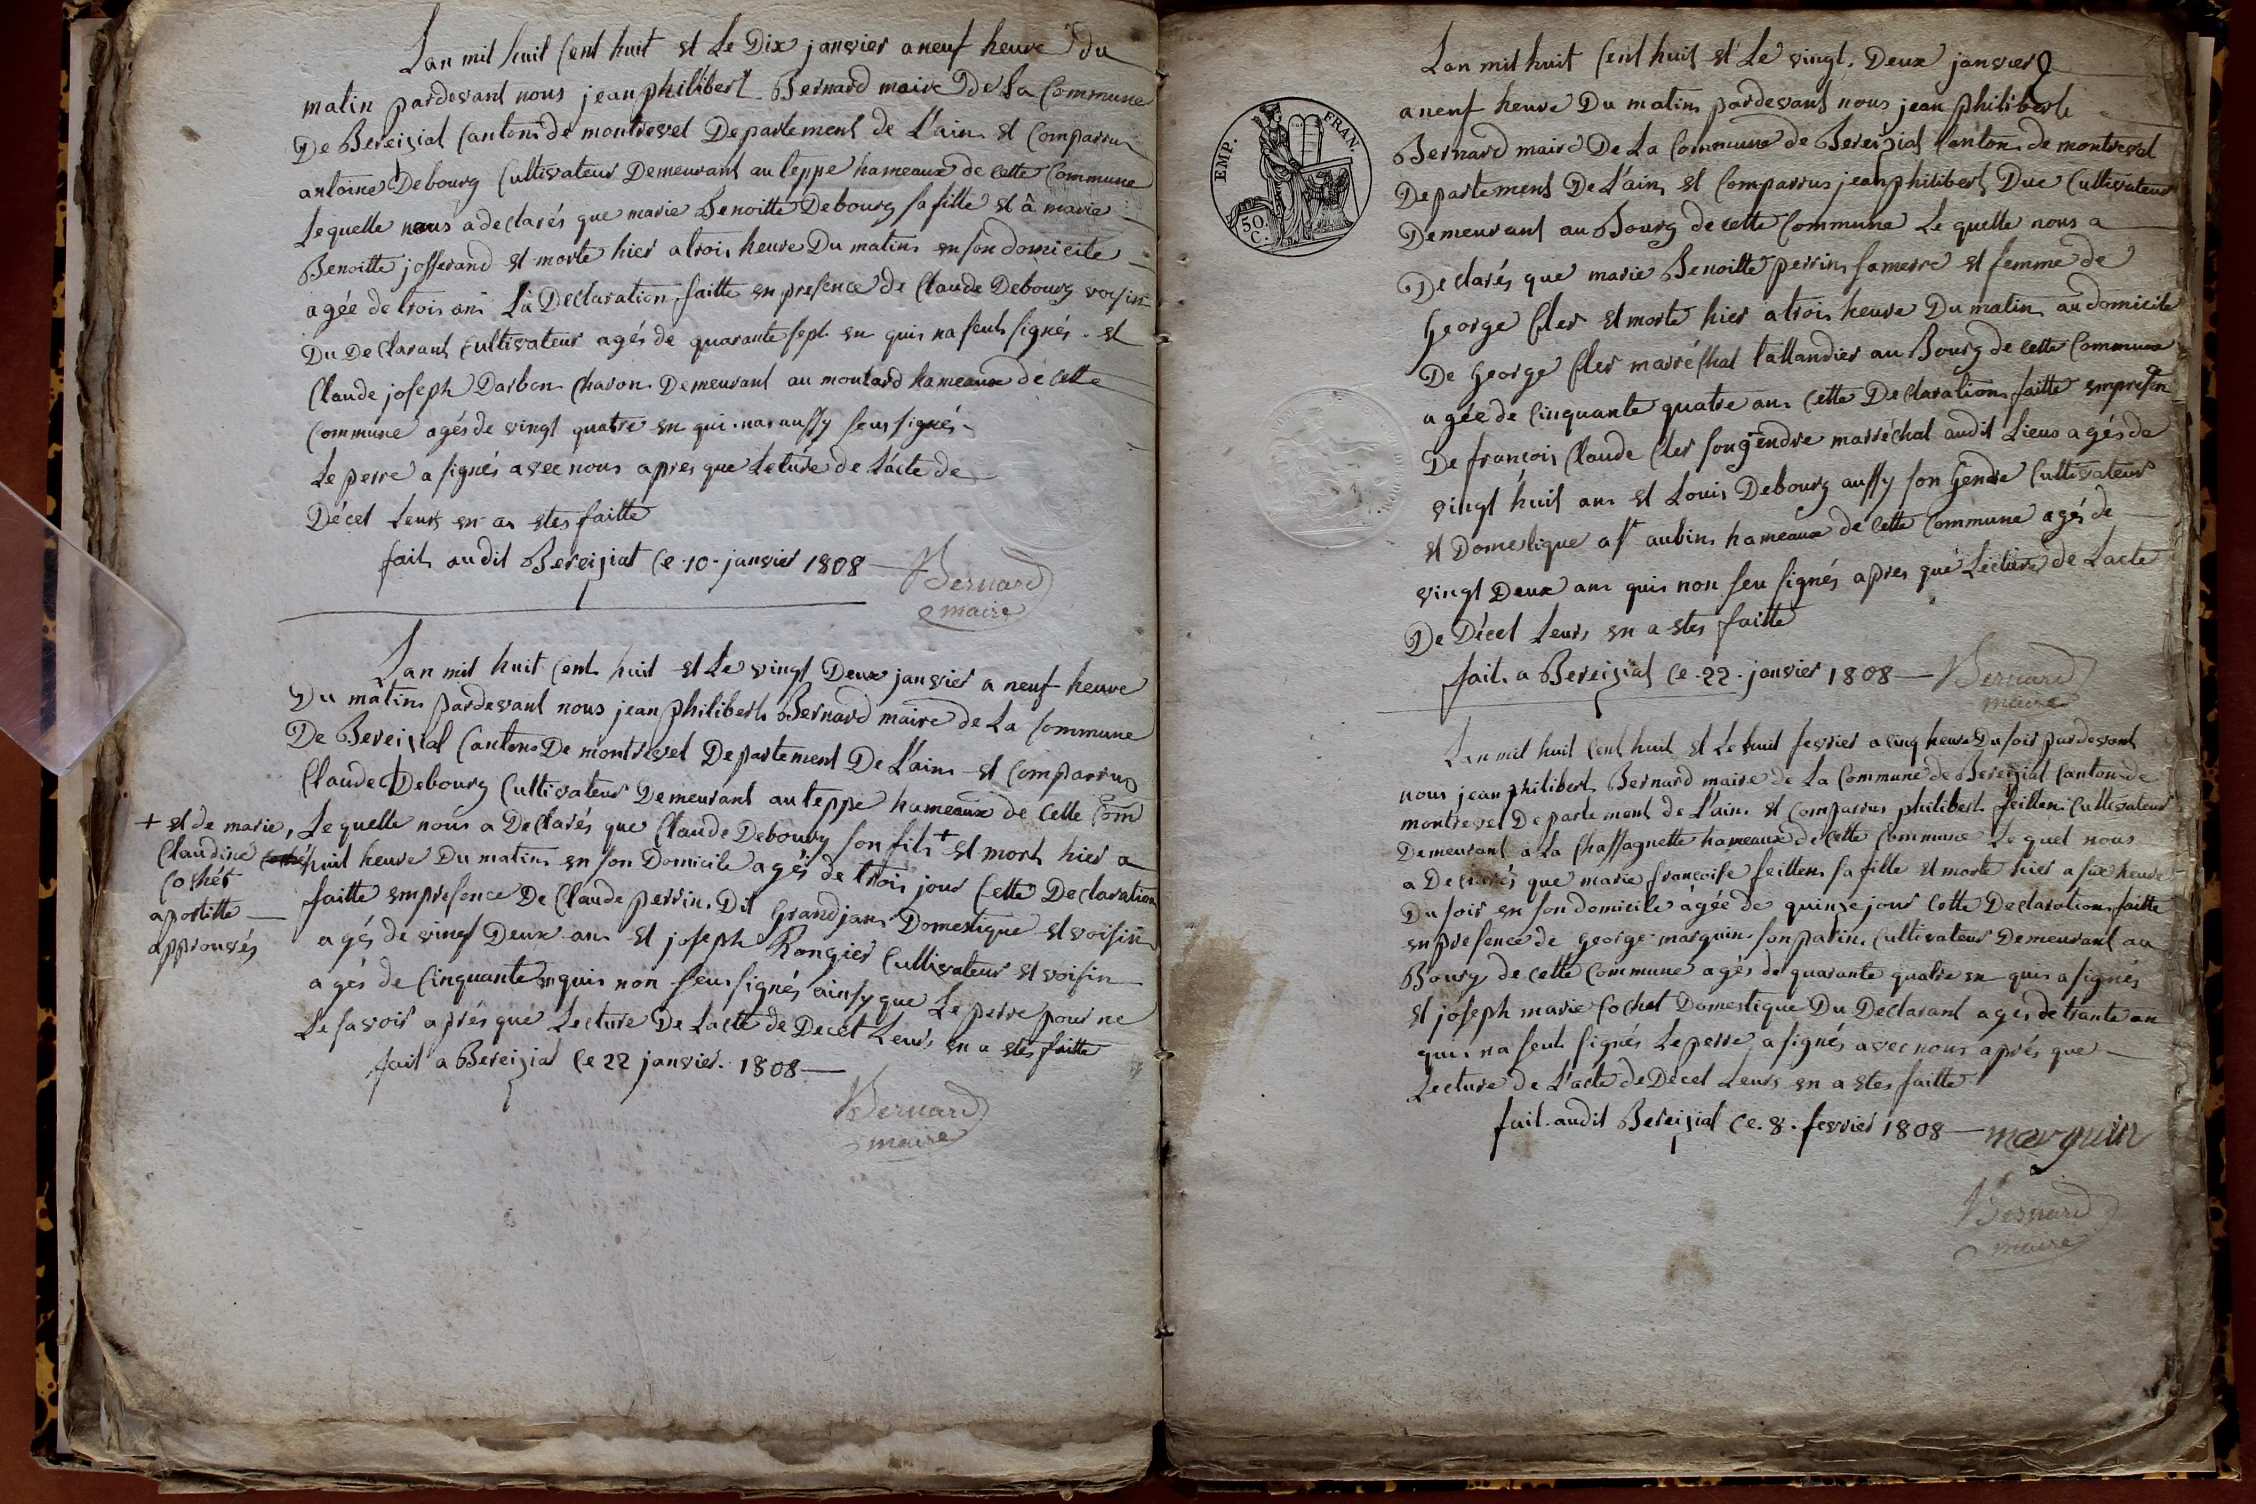 Lan mil huit Cent huit et Le Dix janvier a neuf heure du
matin pardevant nous jean philibert Bernard maire De La Commune
De Bereiziat Canton de montrevel Departement de L'ain et Comparru
antoine Debourg Cultivateur Demeurant au teppe hameaux de Cette Commune
Lequelle nous a declarés que marie Benoitte Debourg sa fille et à marie
Benoitte josserand et morte hier a trois heure Du matin en son domicile
agée de trois ans La Declaration faitte en presence de Claude Debourg voisin
Du Declarant Cultivateur agés de quarante sept en quis na seut signés et
Claude joseph Darbon Charon Demeurant au moutard hameaux de Cette
Commune agés de vingt quatre en qui na aussy seu signés
Le perre a signés avec nous apres que Leture de L'acte de
Décet Leurs en a etes faitte
fait audit Bereiziat Ce 10 janvier 1808
Bernard
maire
Lan mil huit Cent huit et Le vingt Deux janvier a neuf heure
Du matin pardevant nous jean philibert Bernard maire de La Commune
De Bereiziat Canton De montrevel Departement De L'ain et Comparrus
Claude Debourg Cultivateur Demeurant au teppe hameaux de Cette Com
Lequelle nous a Declarés que Claude Debourg son fils + et mort hier a
huit heure Du matin en son Domicile agés de trois jour Cette Declaration
faitte en presence De Claude perrin Dit Grandjan Domestique et voisin
agés de vingt Deux an et joseph Rongier Cultivateur et voisin
agés de Cinquante en quis non seu signés ainsy que Le perre pour ne
Le savoir aprés que Lecture De Lacte de Decet Leurs en a etes faitte
fait a Bereiziat Ce 22 janvier 1808
Bernard
maire
+ et de marie
Claudine
Cochet
apostille
approuvés
EMP. FRAN.
50. C.
Lan mil huit Cent huit et Le vingt Deux janvier
a neuf heure Du matin pardevant nous jean philibert
Bernard maire De La Commune de Bereiziat Canton de montrevel
Departement De L'ain et Comparrus jean philibert Duc Cultivateur
Demeurant au Bourg de cette Commune Le quelle nous a
Declarés que marie Benoitte perrin sa merre et femme de
George Cler et morte hier a trois heure Du matin au domicile
De George Cler marréchal tallandier au Bourg de Cette Commune
agée de Cinquante quatre an Cette Declaration faitte en presen
De françois Claude Cler son gendre marréchal audit Lieux agés de
vingt huit an et Louis Debourg aussy son Gendre Cultivateur
et Domestique a st aubin hameaux de Cette Commune agés de
vingt Deux an quis non seu signés apres que Lecture de Lacte
De Décet Leurs en a etes faitte
fait a Bereiziat Ce 22 janvier 1808
Bernard
maire
Lan mil huit Cent huit et Le huit fevrier a Cinq heure Du soir pardevant
nous jean philibert Bernard maire de La Commune de Bereiziat Canton de
montrevel Departement de L'ain et Comparrus philibert feillen Cultivateur
Demeurant a La Chassagnette hameaux de Cette Commune Lequel nous
a Declarés que marie françoise feillen sa fille et morte hier a six heure
Du soir en son domicile agée de quinze jour Cette Declaration faitte
en presence de George marguin son parin Cultivateur Demeurant au
Bourg de Cette Commune agés de quarante quatre en quis a signés
et joseph marie Cochet Domestique Du Declarant ages de trante an
quis na seut signés Le perre a signés avec nous aprés que
Lecture de L'acte de Decet Leurs en a etes faitte
fait audit Bereiziat Ce 8 fevrier 1808 marguin
Bernard
maire